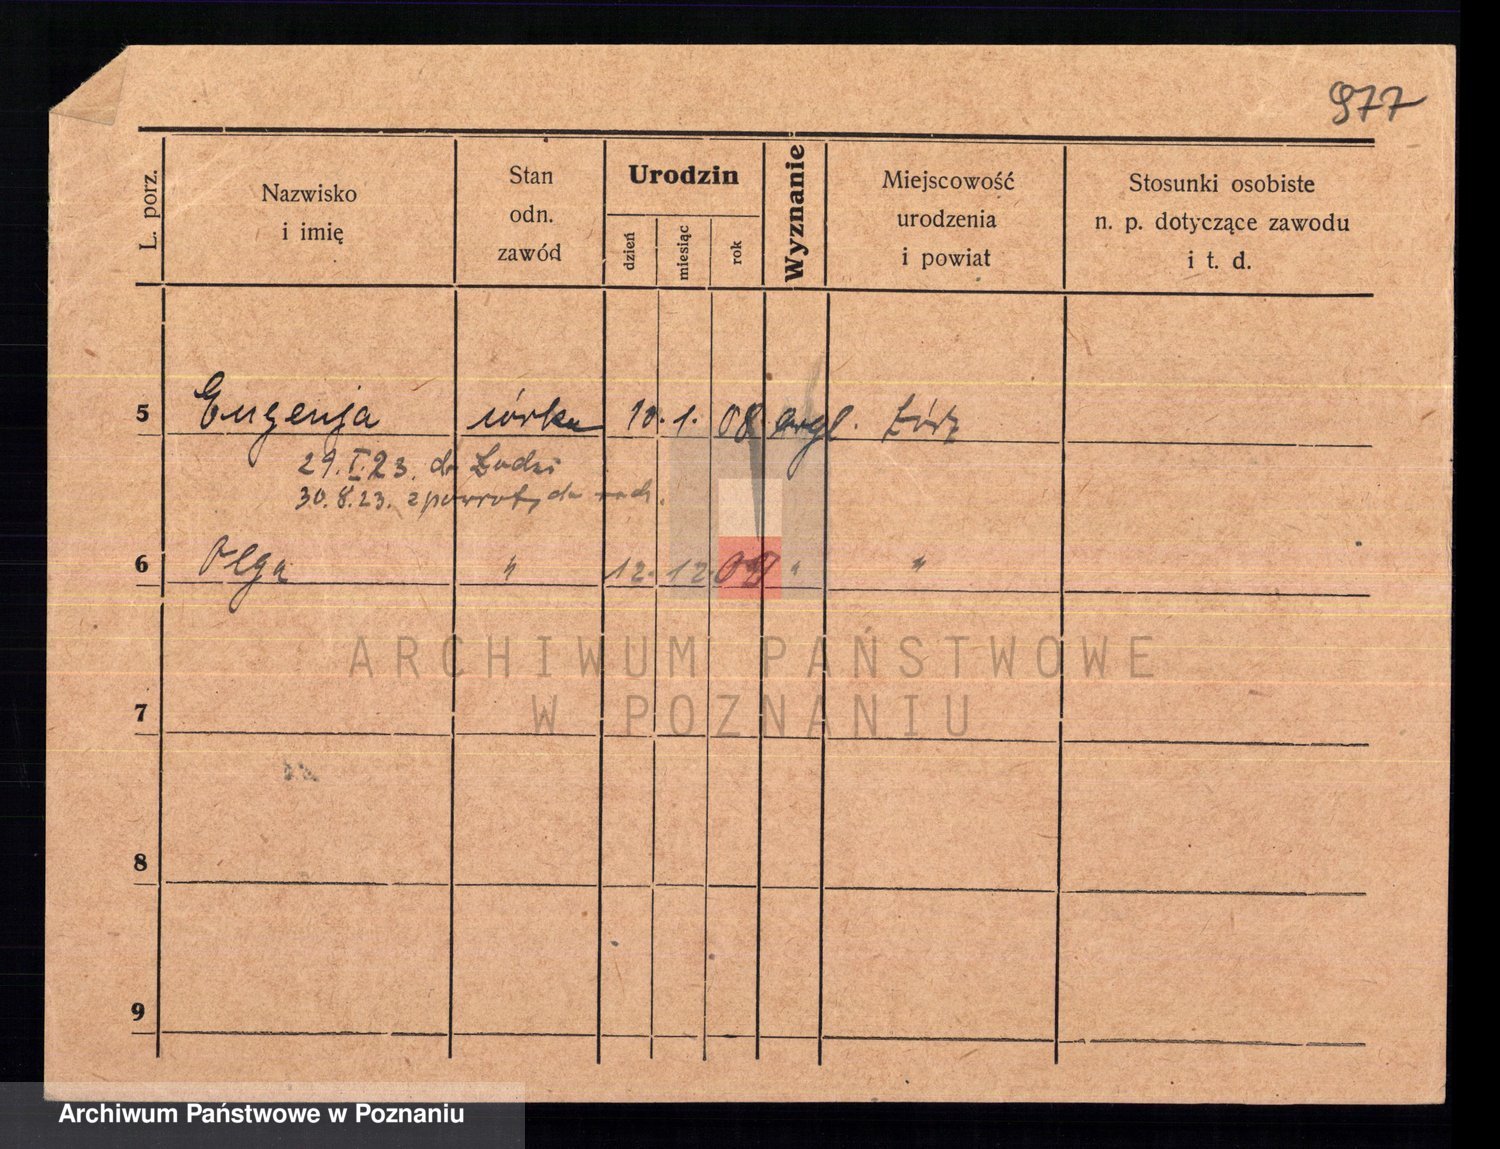 977
L. porz.
Nazwisko
i imię
Stan
odn.
zawód
Urodzin
dzień
miesiąc
rok
Wyznanie
Miejscowość
urodzenia
i powiat
Stosunki osobiste
n. p. dotyczące zawodu
i t. d.
5 Eugenja córka 10. 1. 08 ewgl. Łódź
29.I.23. do Łodzi
30.8.23. z powrotem do
6 Olga " 12. 12. " "
ARCHIWUM PAŃSTWOWE
W POZNANIU
7
8
9
Archiwum Państwowe w Poznaniu